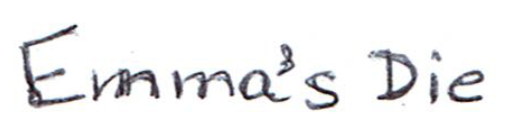 Emma's Die